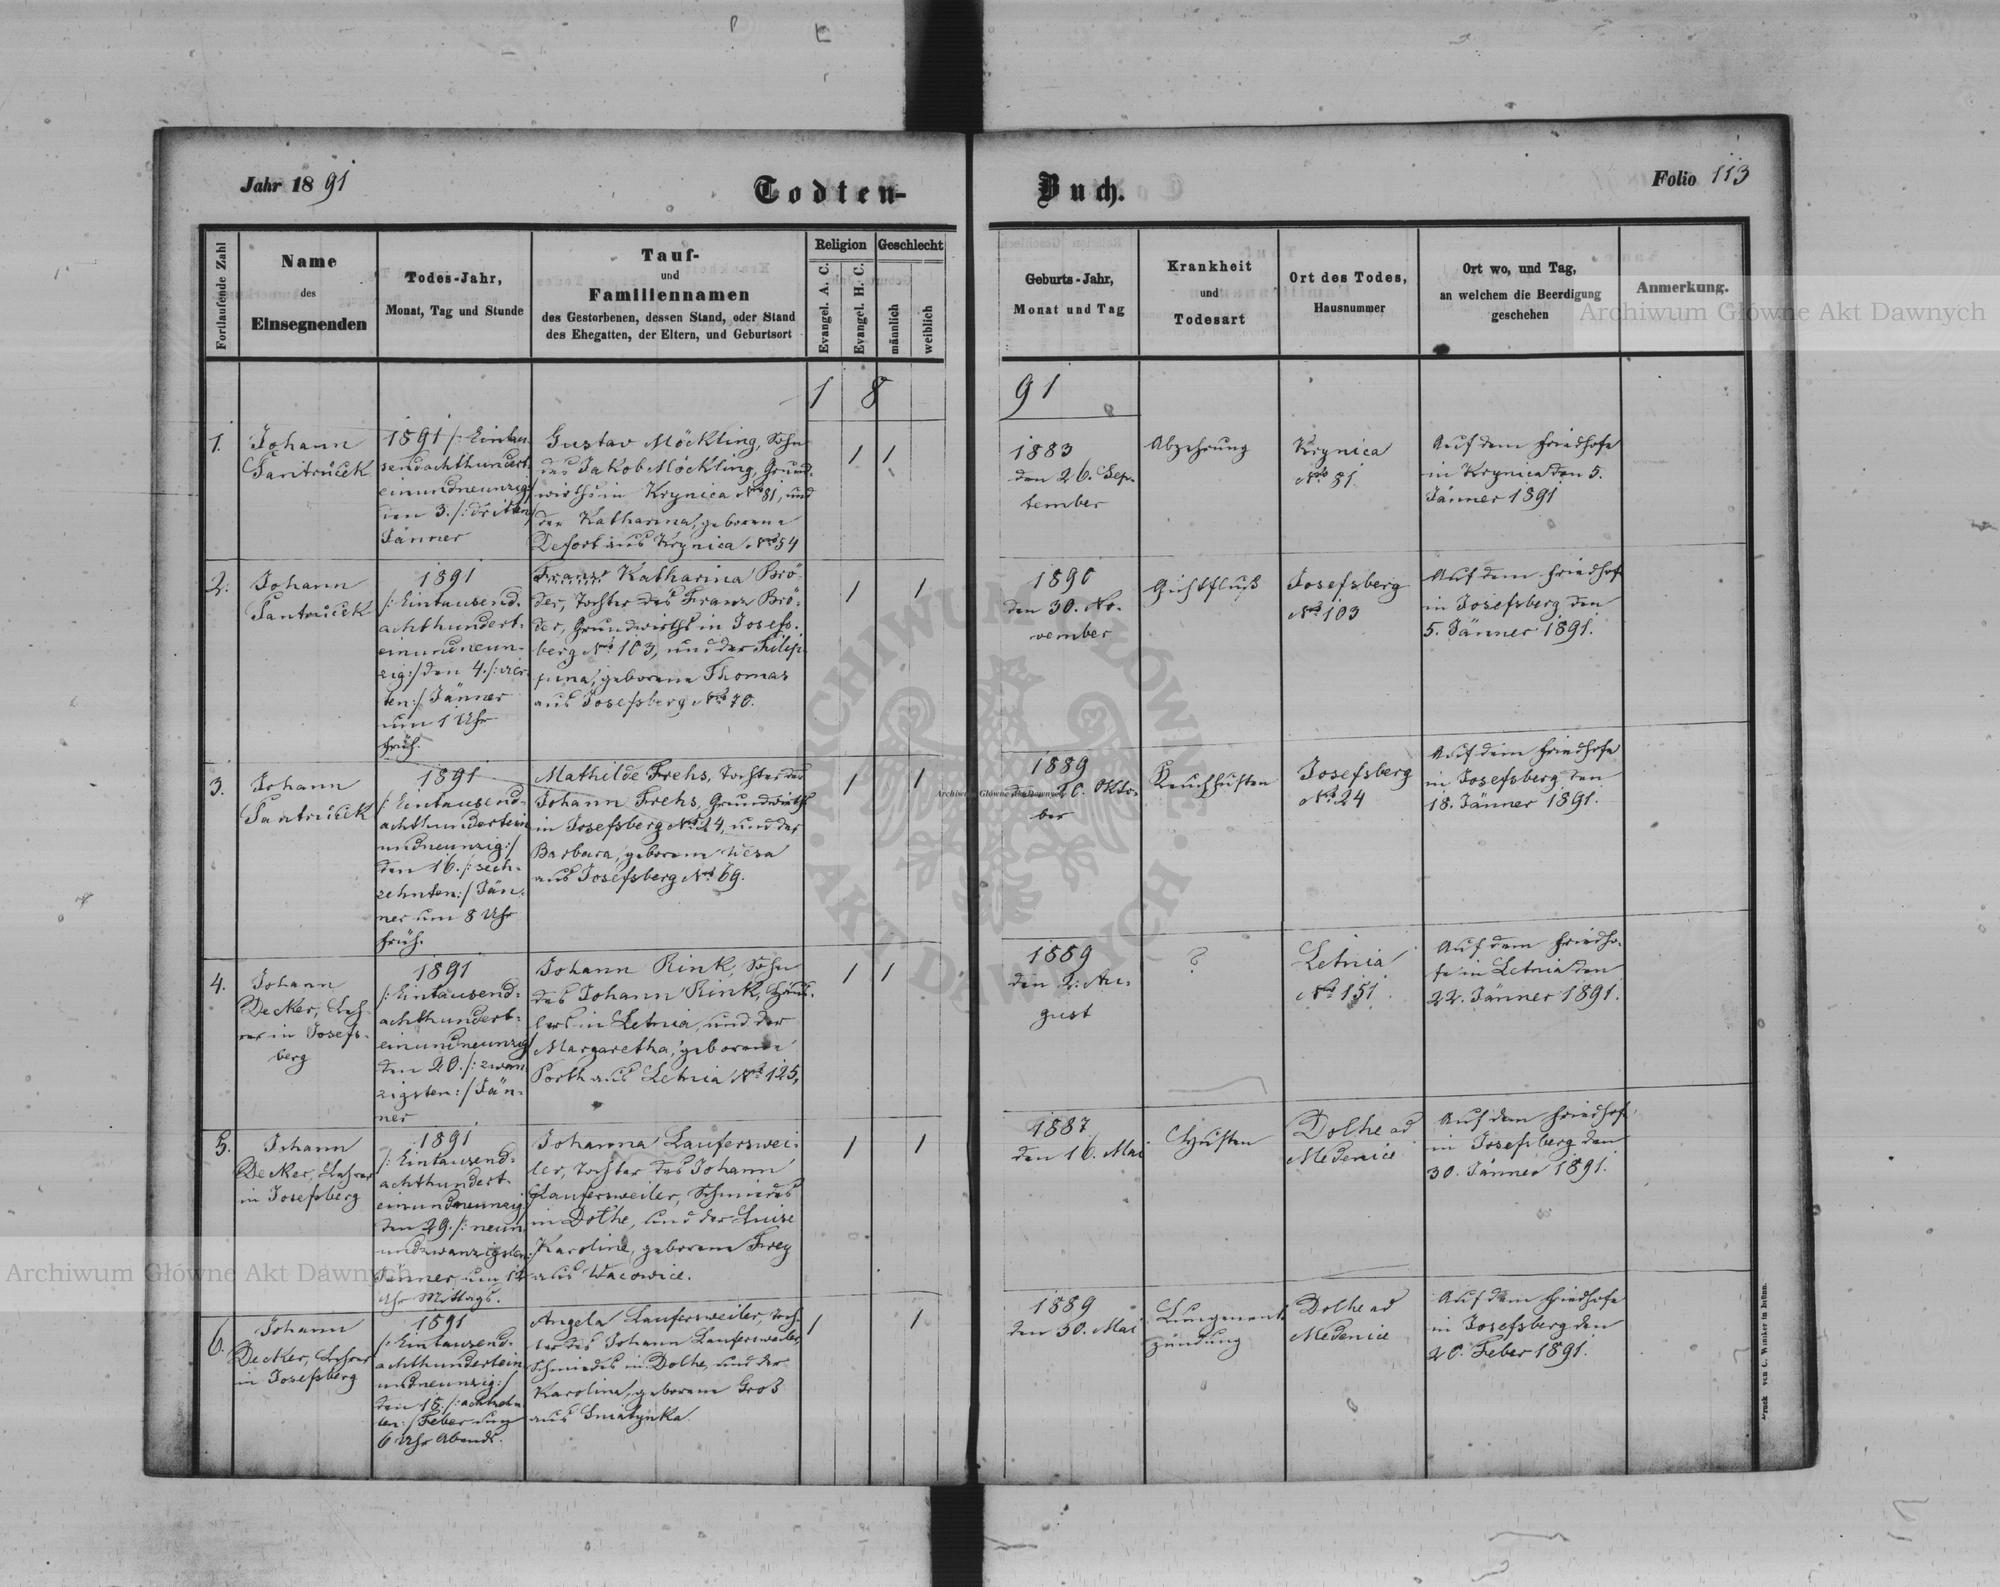 Jahr 1891
Todten-
Buch.
Folio 113
Fortlaufende Zahl
Name
des
Einsegnenden
Todes-Jahr,
Monat, Tag und Stunde
Tauf-
und
Familiennamen
des Gestorbenen, dessen Stand, oder Stand
des Ehegatten, der Eltern, und Geburtsort
Religion
Evangel. A. C.
Evangel. H. C.
Geschlecht
männlich
weiblich
Geburts-Jahr,
Monat und Tag
Krankheit
und
Todesart
Ort des Todes,
Hausnummer
Ort wo, und Tag,
an welchem die Beerdigung
geschehen
Anmerkung.
1 8
91
1.
Johann
Santruček
1891 /: Eintau-
sendachthundert-
einundneunzig:/
den 3. /: dritten
Jänner
Gustav Möckling, Sohn
des Jakob Möckling, Grund-
wirths in Krynica Nro 81, und
der Katharina, geborene
Defort aus Krynica Nro 54
1
1
1883
den 26. Sep-
tember
Abzehrung
Krynica
Nro 81
Auf dem Friedhofe
in Krynica den 5.
Jänner 1891
2.
Johann
Santruček
1891
/: Eintausend-
achthundert-
einundneun-
zig:/ den 4. /: vier-
ten:/ Jänner
um 1 Uhr
früh.
Franz Katharina Brö-
der, Tochter des Franz Brö-
der, Grundwirths in Josefs-
berg Nro 103, und der Filip-
pina, geborene Thomas
aus Josefsberg Nro 70.
1
1
1890
den 30. No-
vember
Gichtfluß
Josefsberg
Nro 103
Auf dem Friedhofe
in Josefsberg den
5. Jänner 1891.
3.
Johann
Santruček
1891
/: Eintausend-
achthundertein
undneunzig:/
den 16. /: sech-
zehnten:/ Jän-
ner um 8 Uhr
früh.
Mathilde Frehs, Tochter des
Johann Frehs, Grundwirths
in Josefsberg Nro 24, und der
Barbara, geborene
aus Josefsberg Nro 69.
1
1
1889
den 20. Okto-
ber
Keuchhusten
Josefsberg
Nro 24
Auf dem Friedhofe
in Josefsberg den
18. Jänner 1891.
4.
Johann
Decker, Leh-
rer in Josefs-
berg
1891
/: Eintausend-
achthundert-
einundneunzig/
den 20. /: zwan
zigsten:/ Jän-
ner
Johann Rink, Sohn
des Johann Rink, Häus-
lers in Letnia, und der
Margaretha, geborene
Porth aus Letnia Nro 125,
1
1
1889
den 2. Au-
gust
?
Letnia
Nro 151.
Auf dem Friedho-
fe in Letnia den
22. Jänner 1891.
5.
Johann
Decker, Lehrer
in Josefsberg
1891
/: Eintausend-
achthundert-
einundneunzig/
den 29. /: neun
undzwanzigsten:/
Jänner um 12
Uhr Mittags.
Johanna Lauferswei-
ler, Tochter des Johann
Laufersweiler, Schmiedes
in Dolhe, und der Luise
Karoline, geborene Frey
aus Wacowice.
1
1
1887
den 16. Mai
Husten
Dolhe ad
Medenice
Auf dem Friedhofe
in Josefsberg den
30. Jänner 1891.
6.
Johann
Decker, Lehrer
in Josefsberg
1891
/: Eintausend-
achthundertein
undneunzig:/
den 18. /: achtzehn
ten:/ Feber um
6 Uhr Abends.
Angela Laufersweiler, Toch-
ter des Johann Laufersweiler,
Schmiedes in Dolhe, und der
Karolina, geborene Groß
aus Smiatynka.
1
1
1889
den 30. Mai
Lungenent
zündung
Dolhe ad
Medenice
Auf dem Friedhofe
in Josefsberg den
20. Feber 1891.
Druck von C. Winiker in Brünn.
Archiwum Główne Akt Dawnych
Archiwum Główne Akt Dawnych
Archiwum Główne Akt Dawnych
ARCHIWUM GŁÓWNE
AKT DAWNYCH